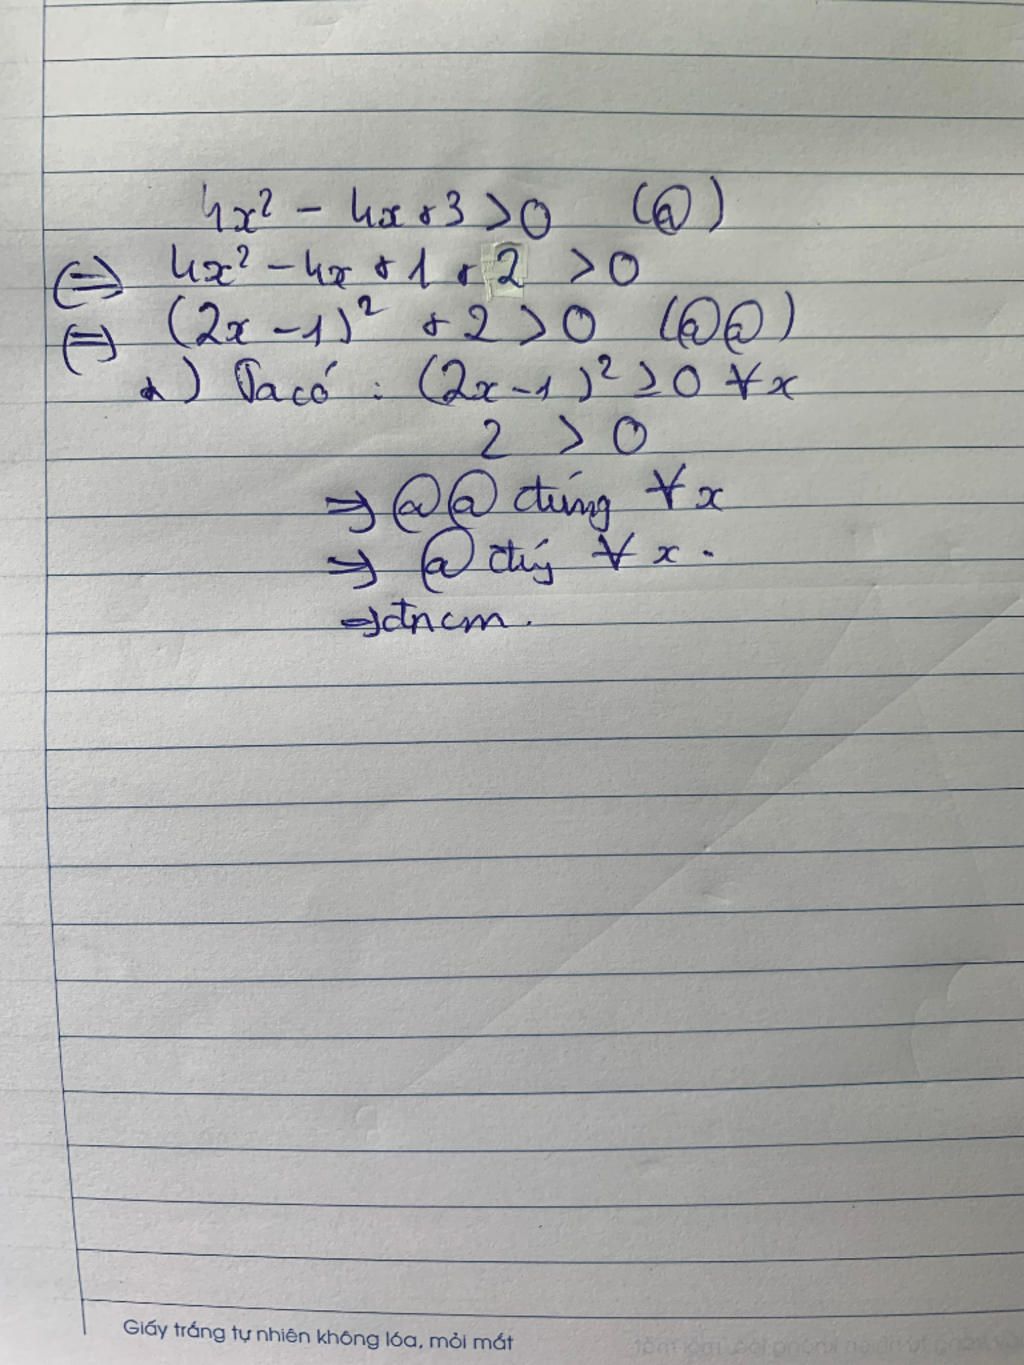 4x² - 4x + 3 > 0 (@)
(=) 4x² - 4x + 1 + 2 > 0
(=) (2x - 1)² + 2 > 0 (@@)
*) Ta có : (2x - 1)² ≥ 0 ∀x
2 > 0
⇒ @@ đúng ∀x
⇒ @ đúg ∀x .
⇒ đpcm .
Giấy trắng tự nhiên không lóa, mỏi mắt